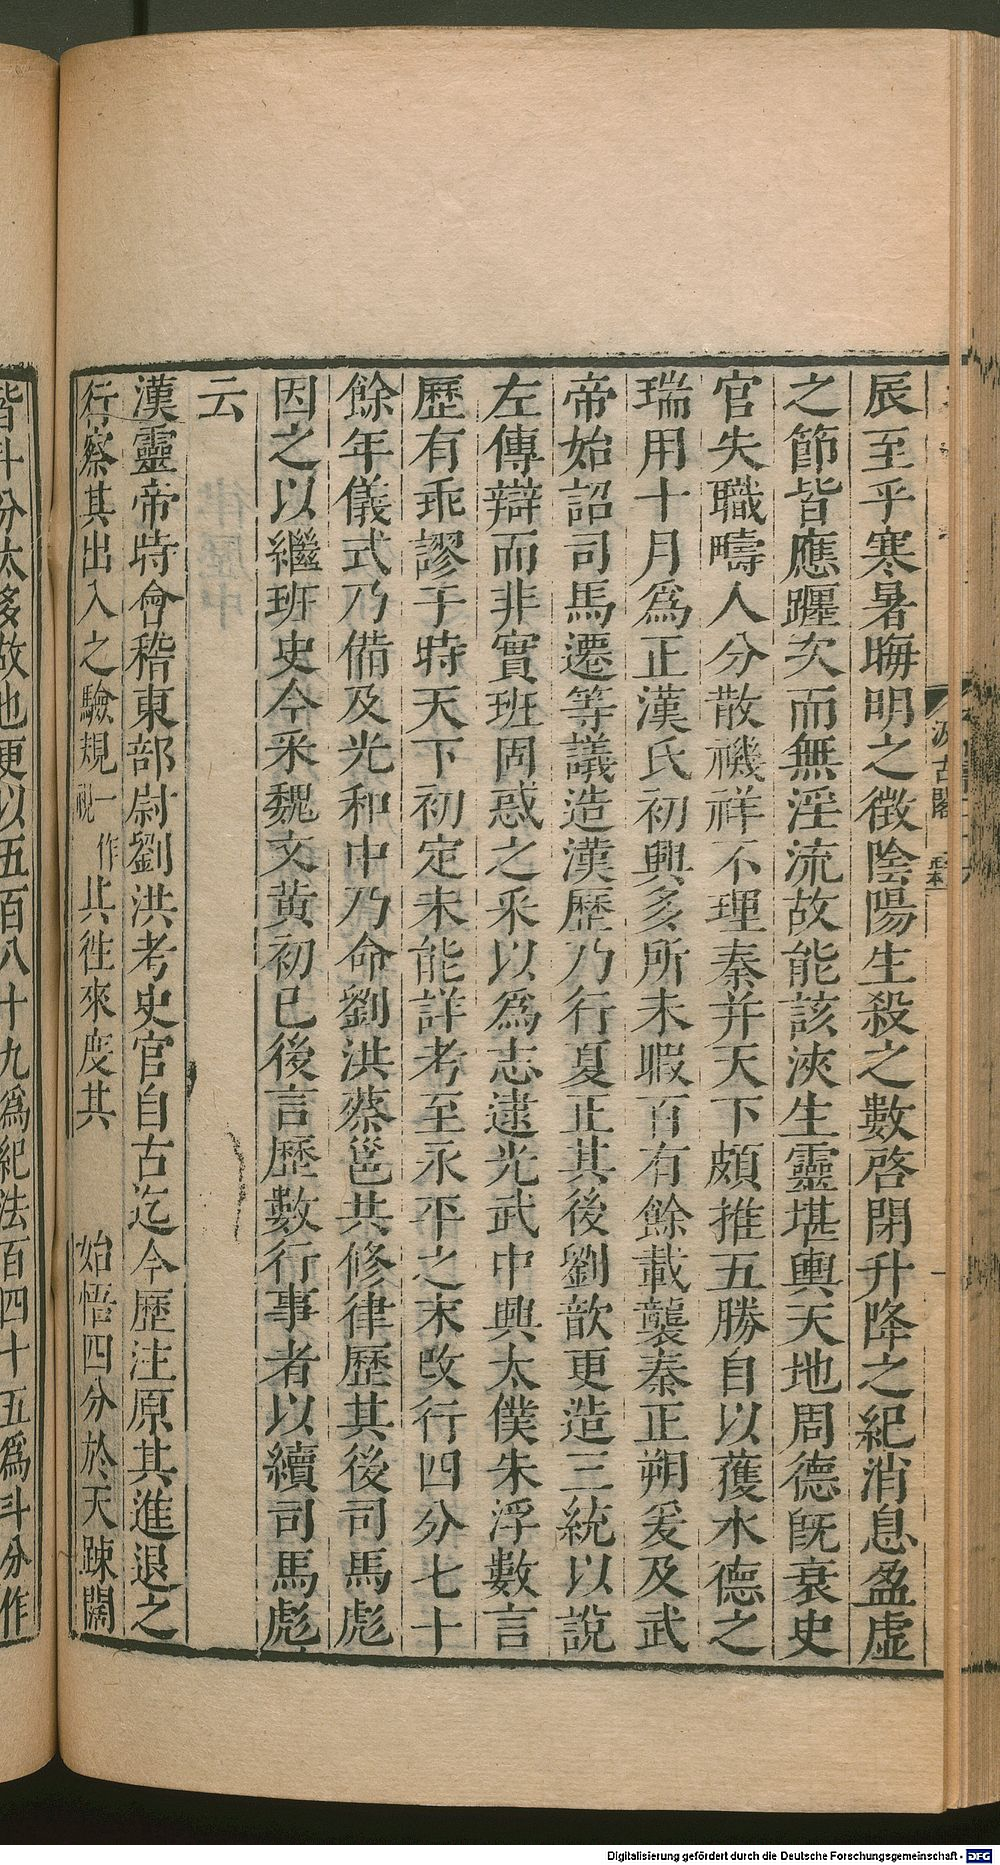 汲古閣
毛本
辰至乎寒暑晦明之徵陰陽生殺之數啓閉升降之紀消息盈虛
之節皆應躔次而無淫流故能該浹生靈堪輿天地周德既衰史
官失職疇人分散禨祥不理秦并天下頗推五勝自以獲水德之
瑞用十月爲正漢氏初興多所未暇百有餘載襲秦正朔爰及武
帝始詔司馬遷等議造漢歷乃行夏正其後劉歆更造三統以說
左傳辯而非實班固惑之采以爲志逮光武中興太僕朱浮數言
歷有乖謬于時天下初定未能詳考至永平之末改行四分七十
餘年儀式乃備及光和中乃命劉洪蔡邕共修律歷其後司馬彪
因之以繼班史今采魏文黃初已後言歷數行事者以續司馬彪
云
漢靈帝時會稽東部尉劉洪考史官自古迄今歷注原其進退之
行察其出入之驗規一作視其往來度其 始悟四分於天踈闊
皆斗分太多故也更以五百八十九爲紀法百四十五爲斗分作
Digitalisierung gefördert durch die Deutsche Forschungsgemeinschaft - DFG